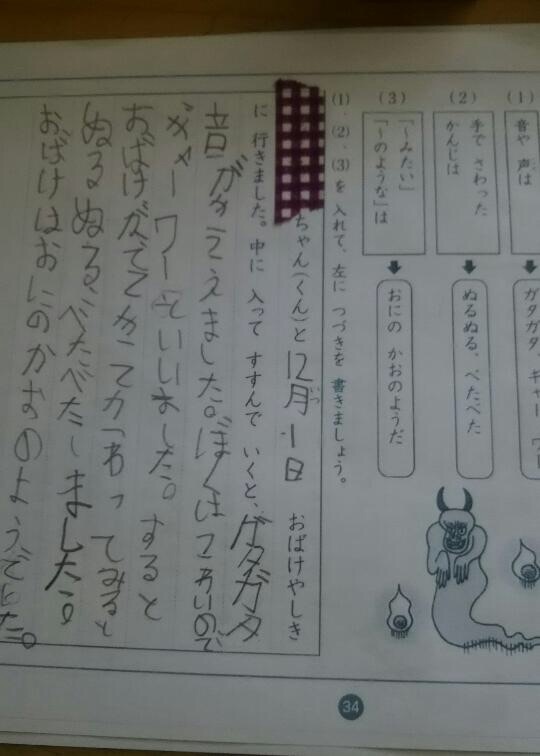 (1)
音や 声は
ガタガタ、キャー ワー
(2)
手で さわった
かんじは
ぬるぬる、べたべた
(3)
「〜みたい」
「〜のような」は
おにの かおのようだ
(1)、(2)、(3)を 入れて、左に つづきを 書きましょう。
ちゃん(くん)と 12月 1日 おばけやしき
に 行きました。中に 入って すすんで いくと、ガタガタ
音がきこえました。ぼくはこわいので
ギャー ワーといいました。すると
おばけがでてきて
ぬるぬるべたべたしました。
おばけはおにのかおのようでした。
34